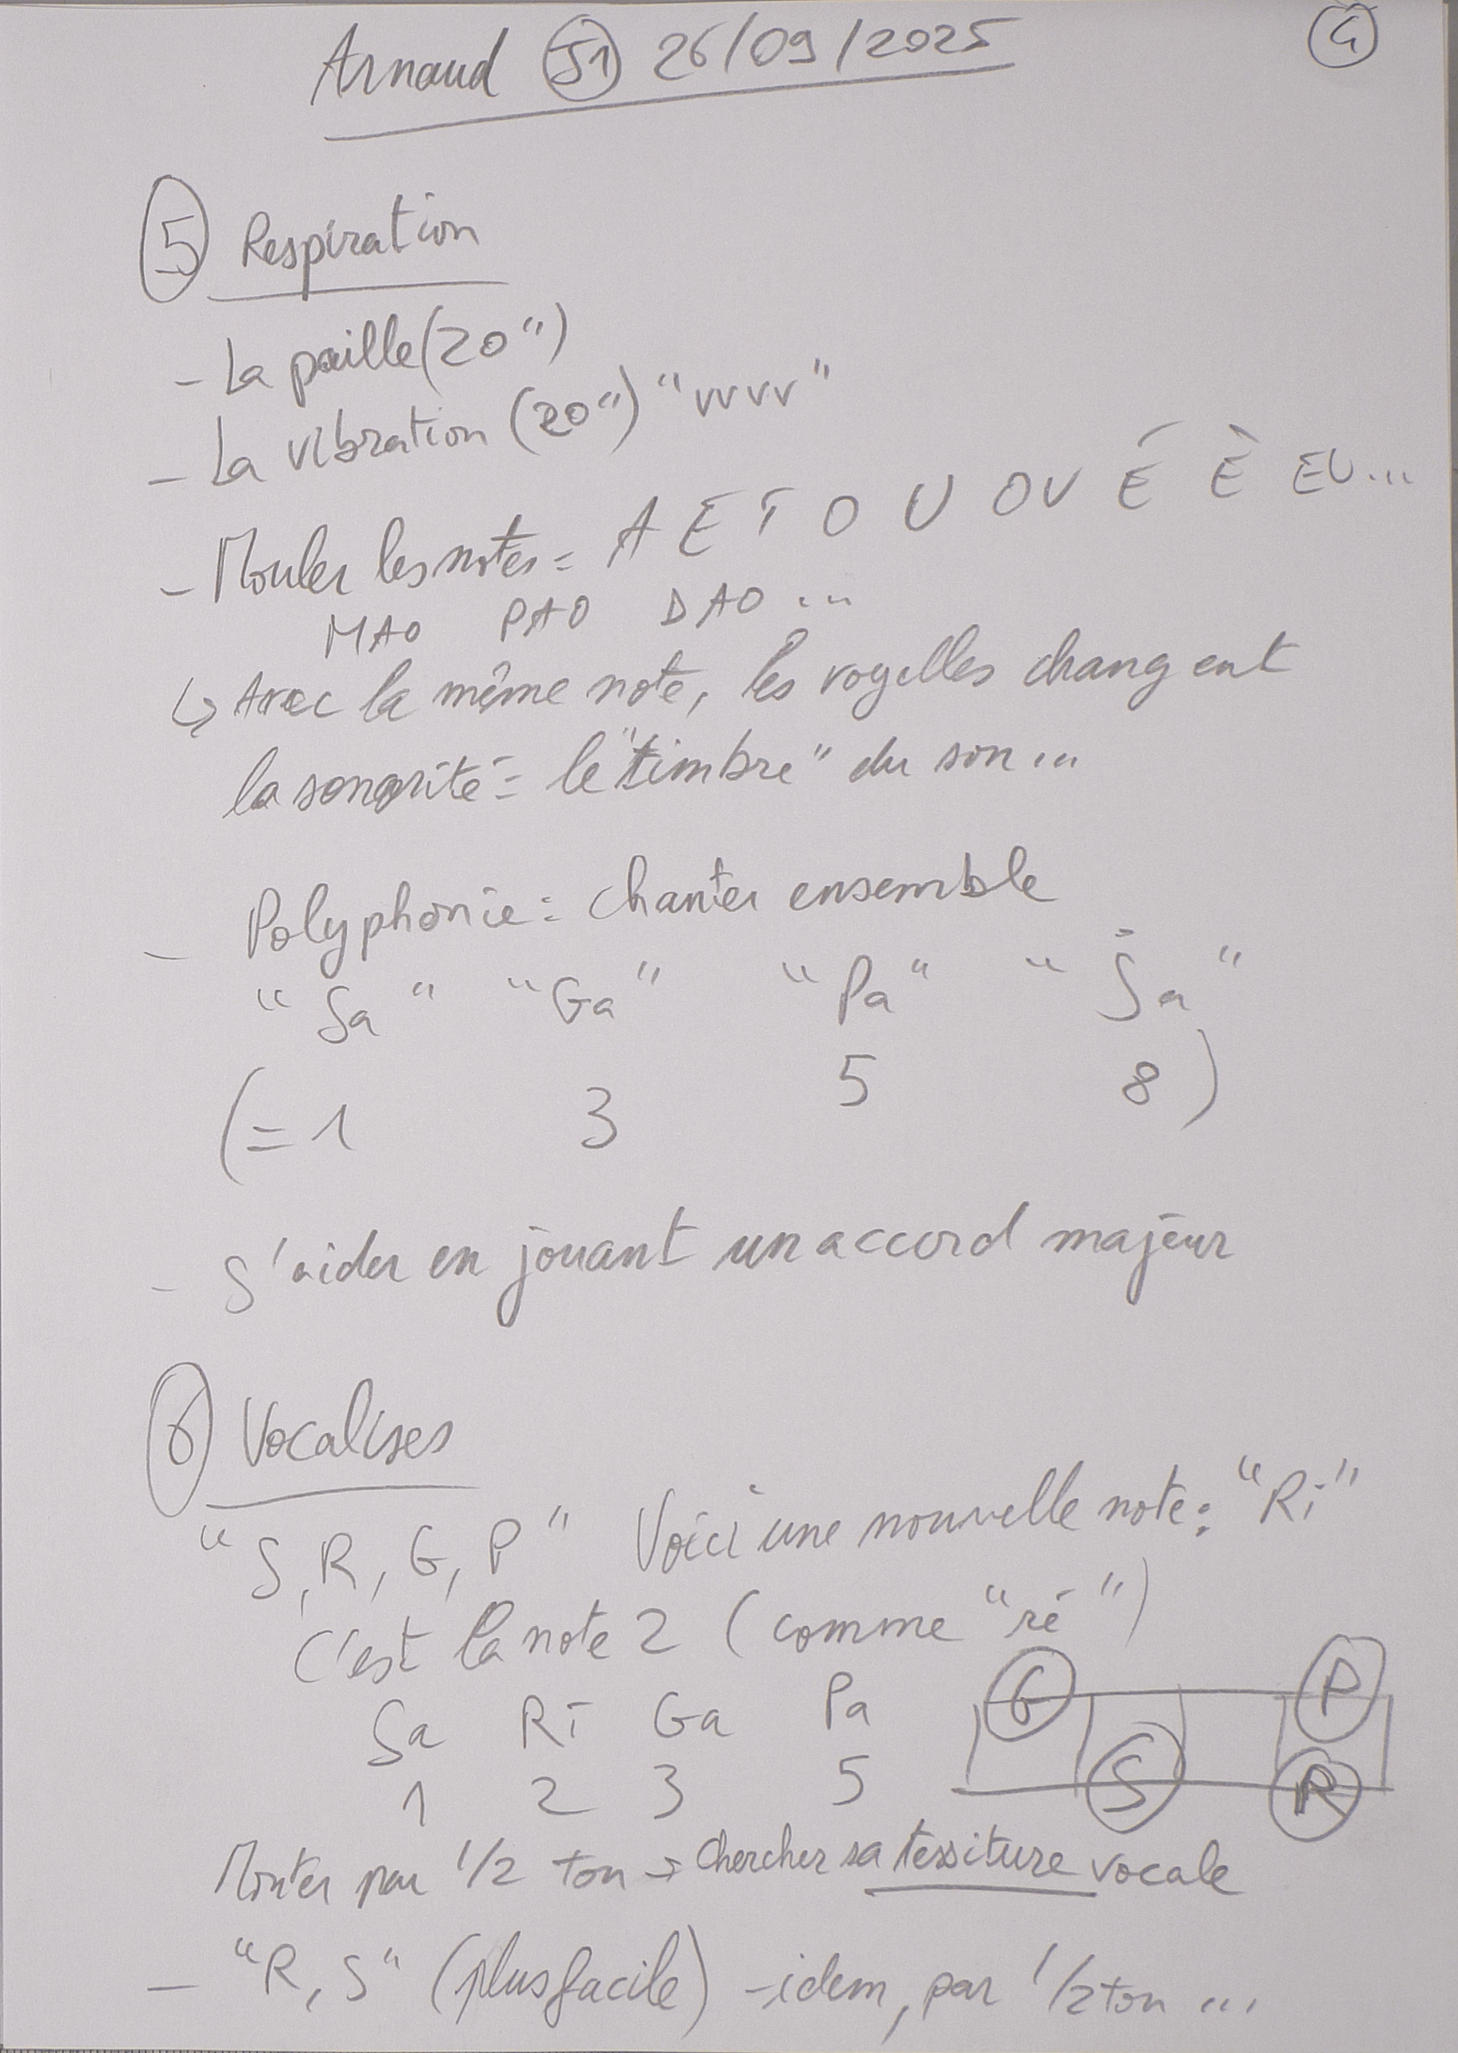 Arnaud S1 26/09/2025
4
5 Respiration
- La paille (20")
- La vibration (20") "vvvv"
- Mouler les notes = A E I O U OU É È EU...
MAO PAO DAO ...
↳ Avec la même note, les voyelles changent
la sonorité = le "timbre" du son...
- Polyphonie = chanter ensemble
"Sa" "Ga" "Pa" "Ṡa"
(= 1 3 5 8)
- S'aider en jouant un accord majeur
6 Vocalises
"S, R, G, P" Voici une nouvelle note : "Ri"
C'est la note 2 (comme "ré")
Sa Ri Ga Pa
1 2 3 5
G P
S R
Monter par 1/2 ton → chercher sa tessiture vocale
- "R, S" (plus facile) - idem, par 1/2 ton ...